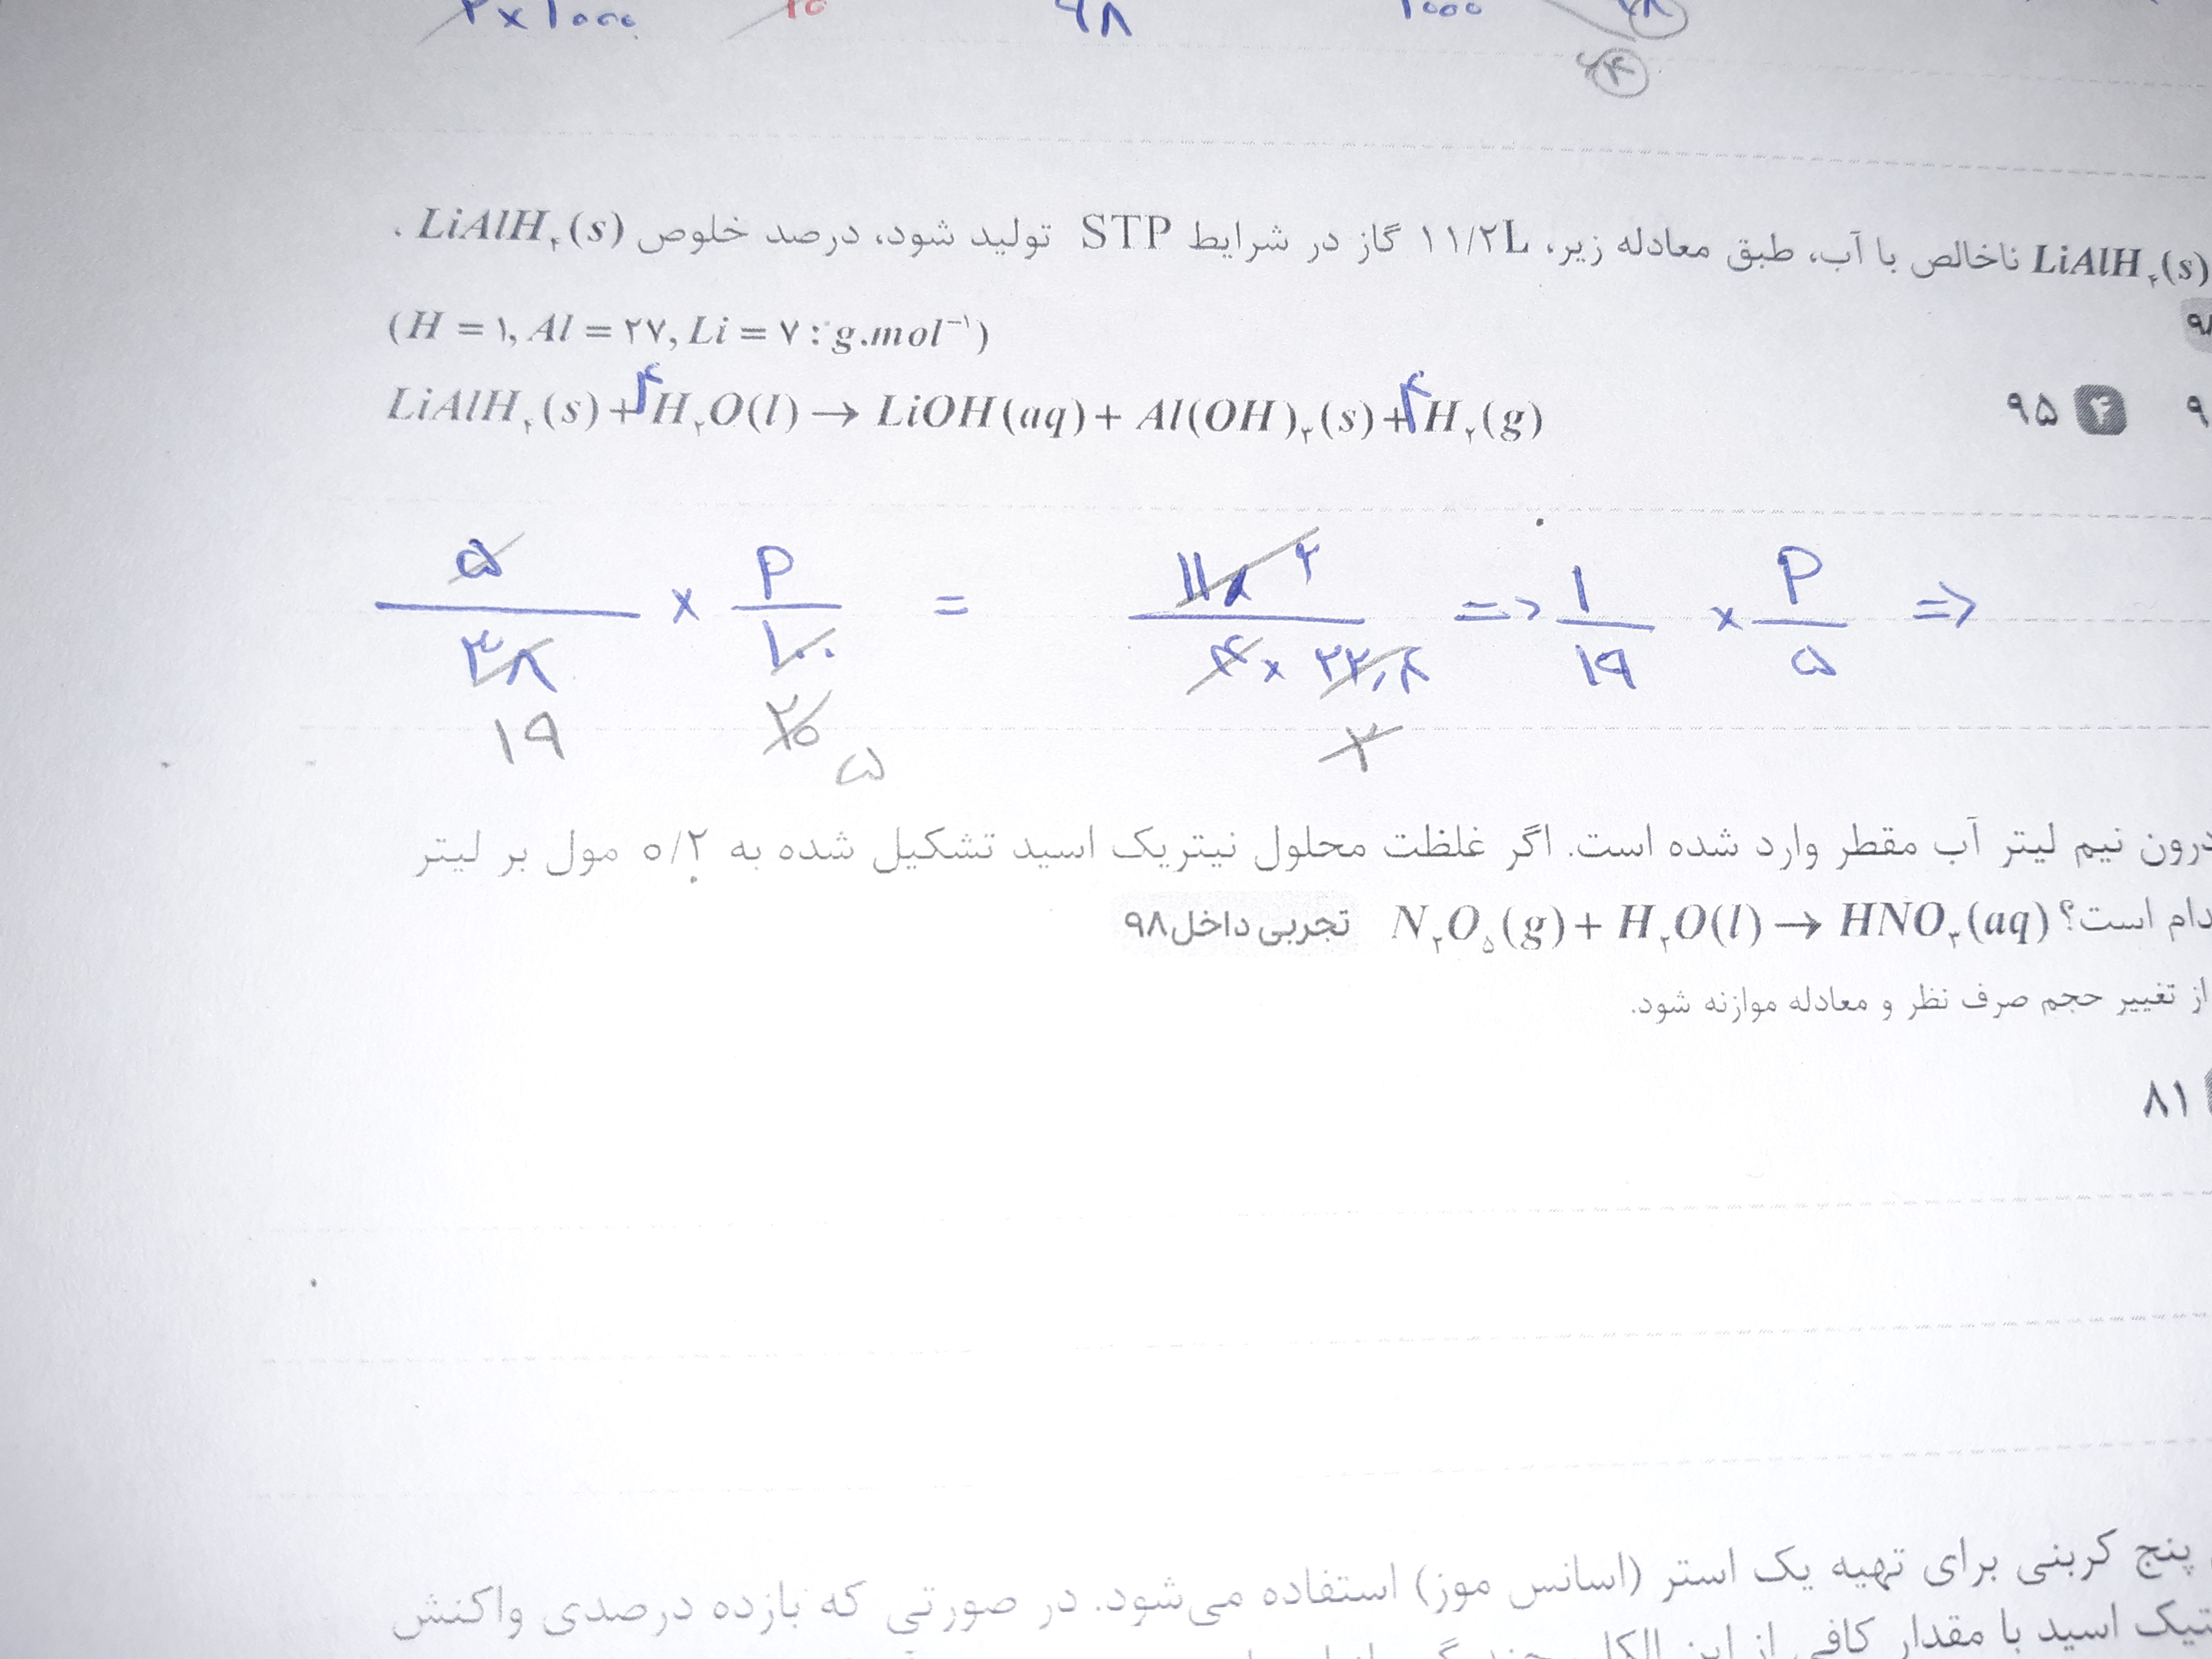 ۲ × ۱۰۰۰ ۱۵ ۶۸ ۱۰۰۰
۲۴
LiAlH۴(s) ناخالص با آب، طبق معادله زیر، ۱۱/۲L گاز در شرایط STP تولید شود، درصد خلوص LiAlH۴(s) .
(H = ۱, Al = ۲۷, Li = ۷ : g.mol⁻¹)
LiAlH۴(s) + ۴H۲O(l) → LiOH(aq) + Al(OH)۳(s) + ۴H۲(g)
۹ ۴ ۹۵
۵/۳۸ × P/۱۰۰ = ۱۱٫۲/۴ × ۲۲٫۴ => ۱/۱۹ × P/۵ =>
۱۹ ۲۰ ۲
۵
درون نیم لیتر آب مقطر وارد شده است. اگر غلظت محلول نیتریک اسید تشکیل شده به ۰/۲ مول بر لیتر
است؟ N۲O۵(g) + H۲O(l) → HNO۳(aq) تجربی داخل۹۸
از تغییر حجم صرف نظر و معادله موازنه شود.
۸۱
پنج کربنی برای تهیه یک استر (اسانس موز) استفاده می‌شود. در صورتی که بازده درصدی واکنش
اسید با مقدار کافی از این الکل